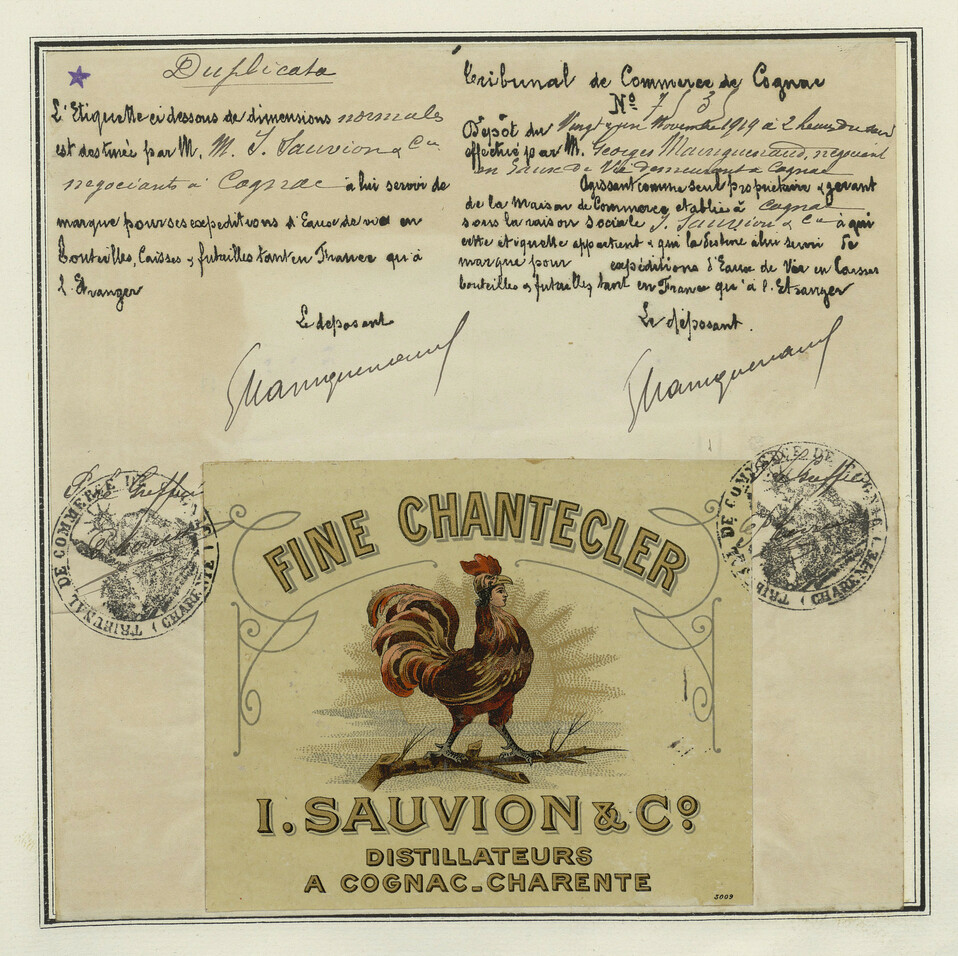 Duplicata
L'Etiquette ci dessous de dimensions normales
est destinée par M. M. I. Sauvion & Cie
negociants à Cognac à lui servir de
marque pour ses expeditions d'Eaux de vie en
Bouteilles, Caisses & futailles tant en France qu'à
L'Etranger
Le deposant
Tribunal de Commerce de Cognac
No 7535
Dépôt du Vingt Novembre 1919 à 2 heures du soir
effectué par M. Georges Mauriguenaud, négociant
en Eaux de Vie demeurant à Cognac
Agissant comme seul propriétaire & gérant
de la Maison de Commerce etablie à Cognac
sous la raison sociale I. Sauvion & Cie à qui
cette etiquette appartient & qui la destine à lui servir de
marque pour expéditions d'Eaux de Vie en Caisses
bouteilles & futailles tant en France qu'à l'Etranger
Le déposant.
TRIBUNAL DE COMMERCE DE COGNAC (CHARENTE)
TRIBUNAL DE COMMERCE DE COGNAC (CHARENTE)
FINE CHANTECLER
I. SAUVION & Co.
DISTILLATEURS
A COGNAC-CHARENTE
3009